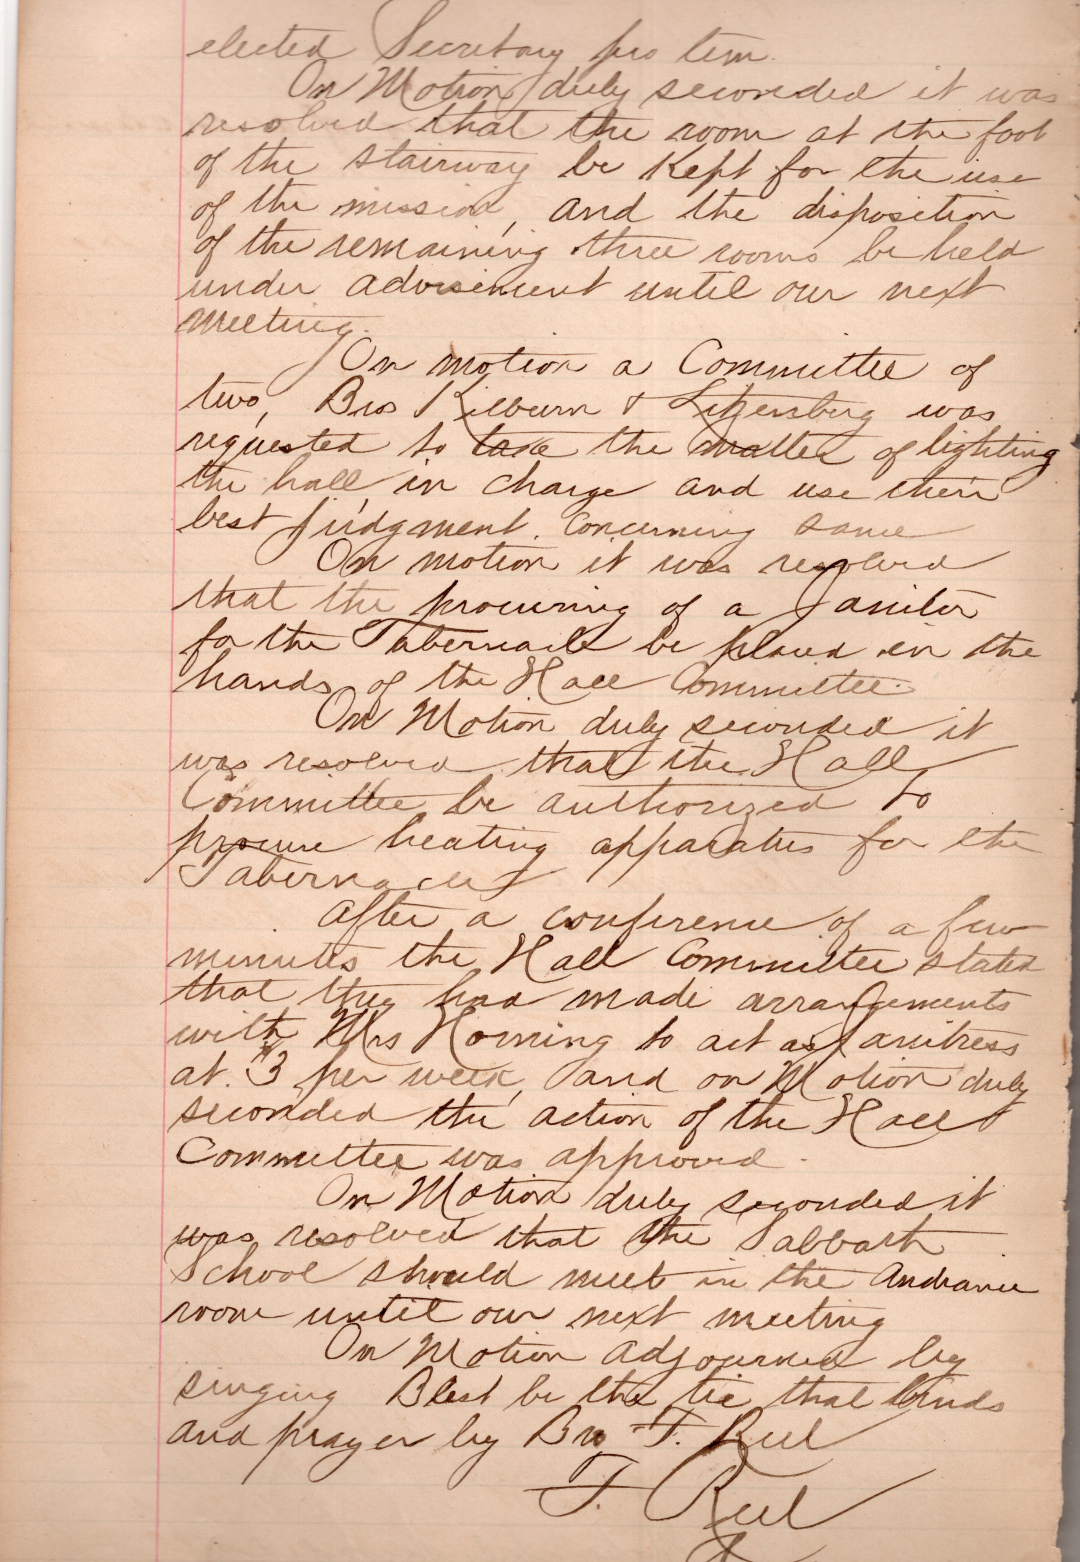 elected Secretary pro tem.
On Motion duly seconded it was
resolved that the room at the foot
of the stairway be kept for the use
of the mission, and the disposition
of the remaining three rooms be held
under advisement until our next
meeting.
On motion a Committee of
two, Bros Kilburn & was
requested to take the matter of lighting
the hall in charge and use their
best judgment. concerning same
On motion it was resolved
that the procuring of a Janitor
for the Tabernacle be placed in the
hands of the Hall Committee.
On Motion duly seconded it
was resolved that the Hall
Committee be authorized to
procure heating apparatus for the
Tabernacle
After a conference of a few
minutes the Hall Committee stated
that they had made arrangements
with Mrs Horning to act as Janitress
at $3 per week, and on Motion duly
seconded the action of the Hall
Committee was approved.
On Motion duly seconded it
was resolved that the Sabbath
School should meet in the
room until our next meeting
On Motion adjourned by
singing Blest be the tie that binds
and prayer by Bro T. Reel
T. Reel